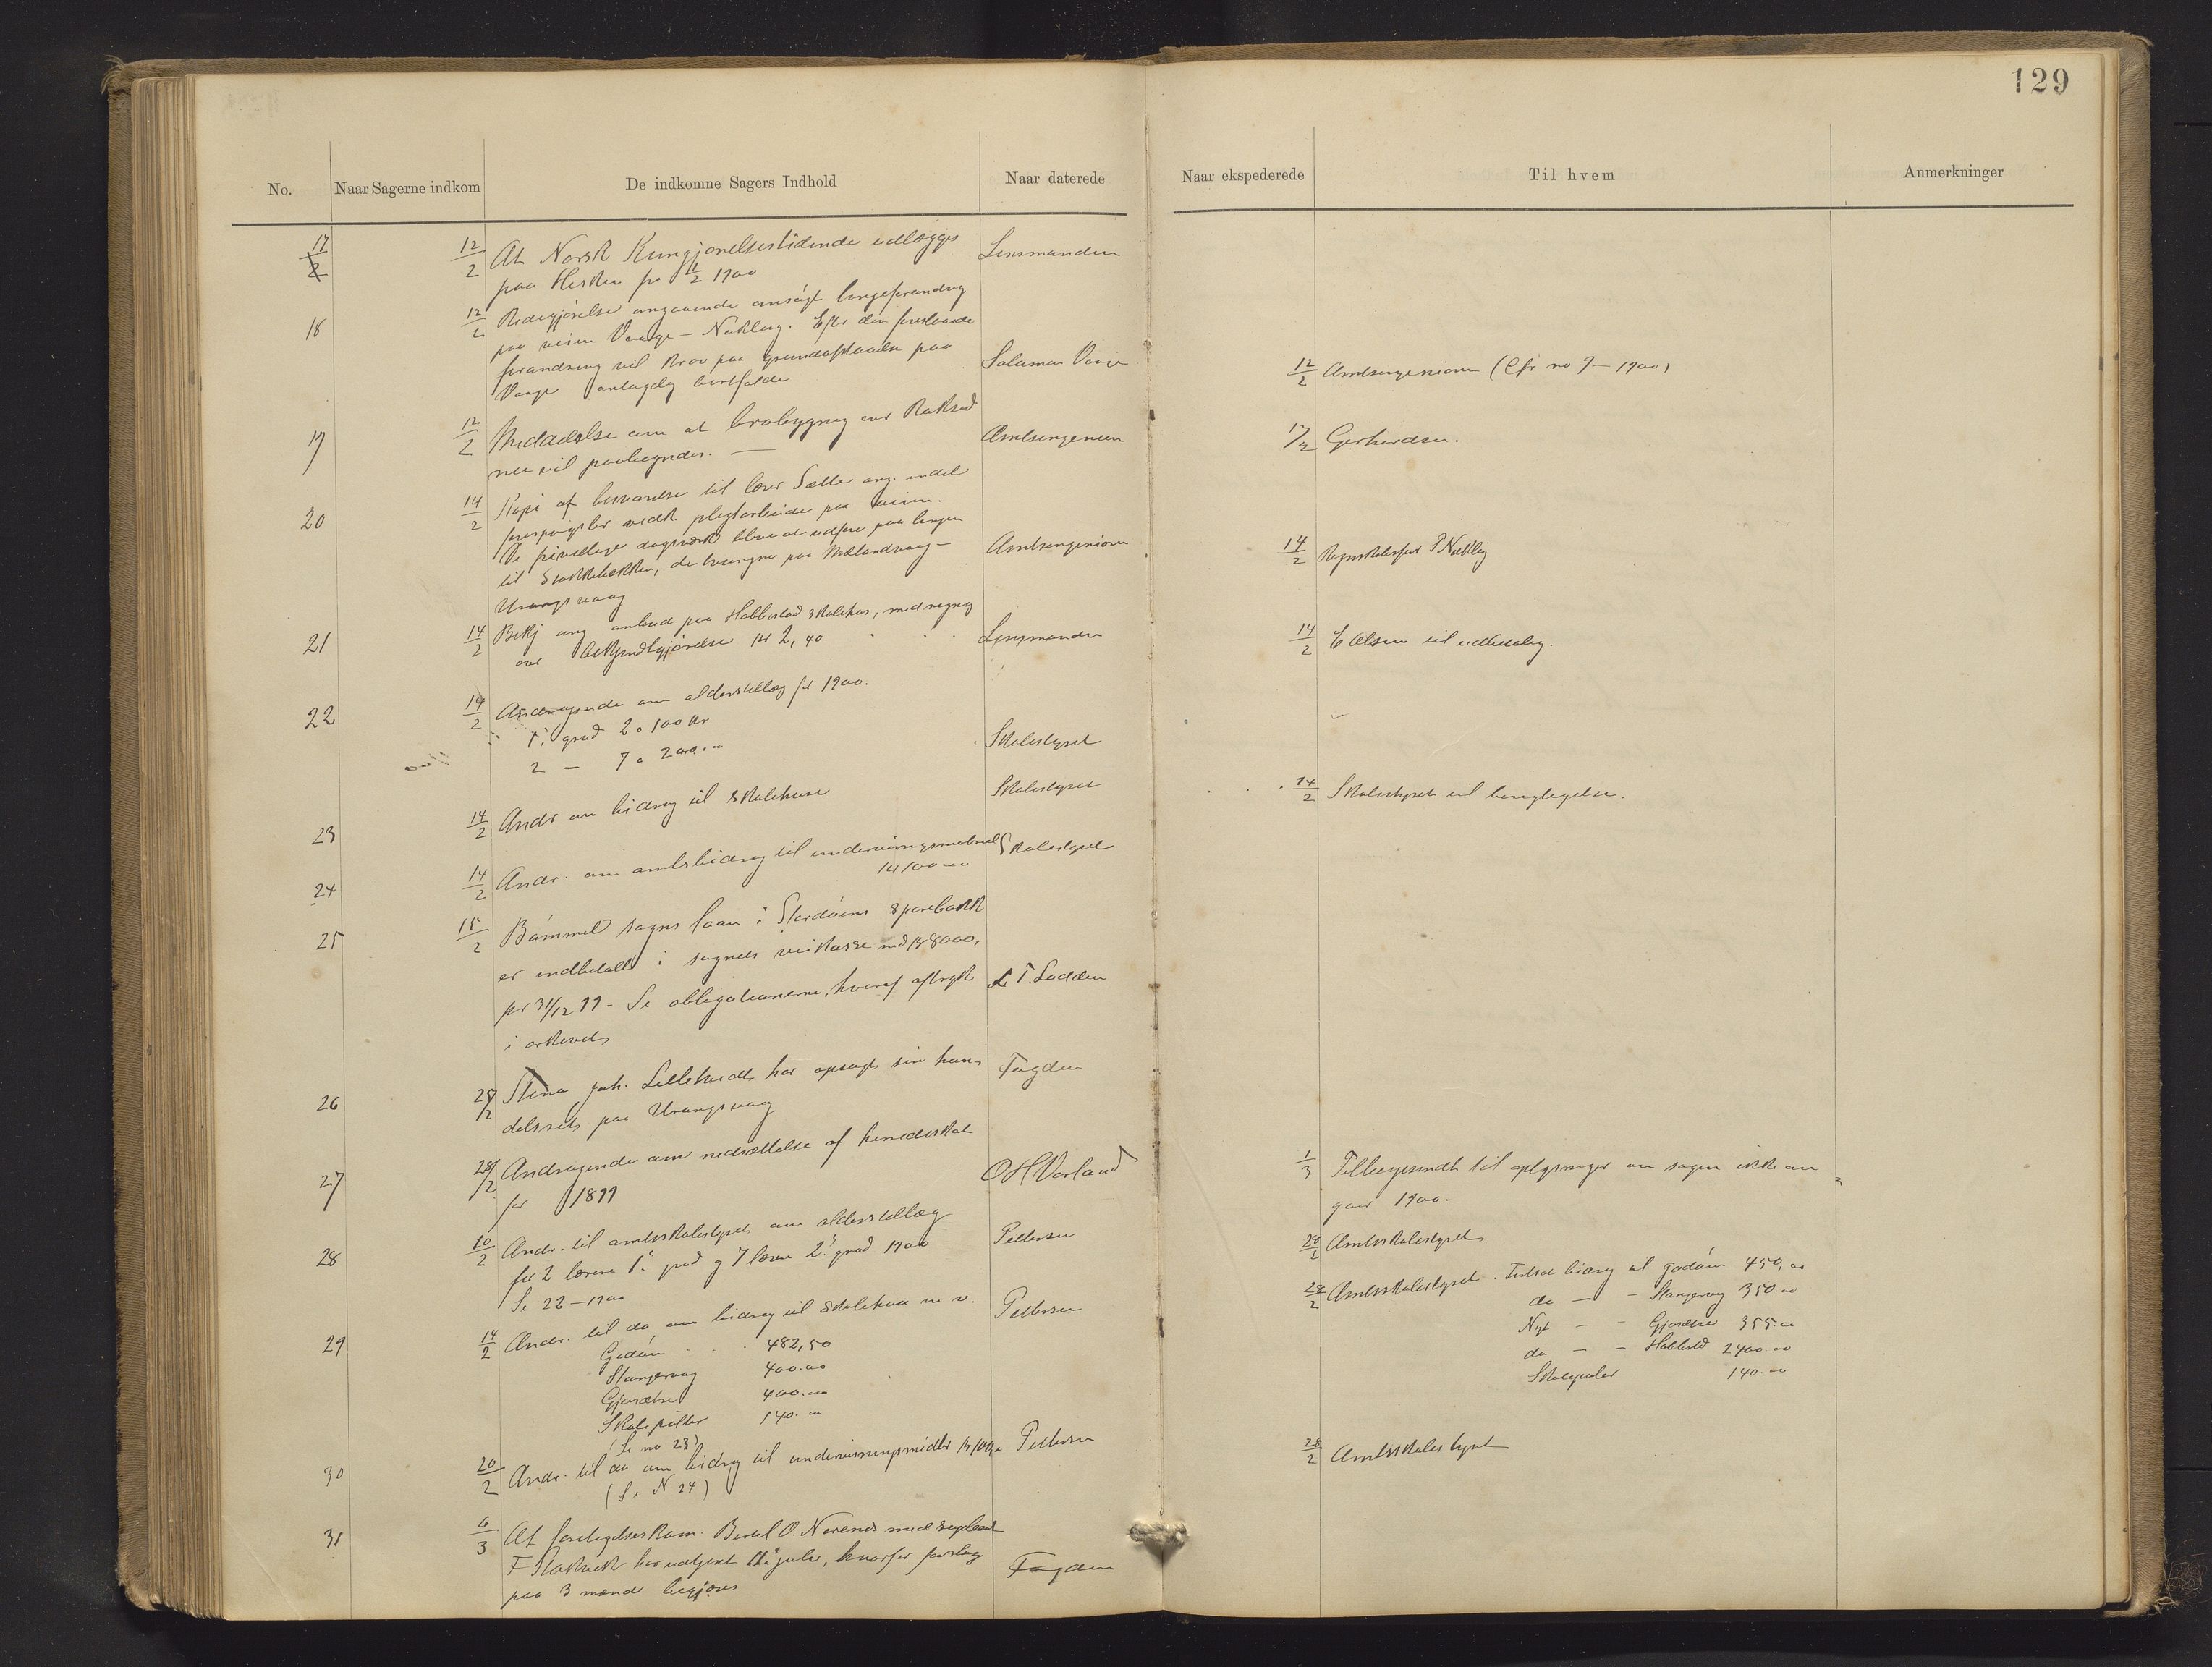 129
No. Naar Sagerne indkom De indkomne Sagers Indhold Naar daterede Naar ekspederede Til hvem Anmerkninger
17 12/2 At Norsk Kungjørelsestidende udlægges Lensmanden
paa Hesken fra 1/2 1900
18 12/2 Redegjørelse angaaende ansøgt
paa veien Vaage - Nekling. Efter den
forandring vil krav paa grundafstaaelse paa Salamon Vaage 12/2 Amtsingeniøren (Cfr no 7 - 1900)
Vaage antagelig bortfalde
19 12/2 Meddelelse om at brobygning over Raksund Amtsingeniøren 17/2 Gerhardsen.
nu vil paabegyndes. —
20 14/2 Kopi af besvarelse til lærer Sætte ang. endel
forespørgsler vedk. pligtarbeide paa veien.
De frivillige dagsværk bliver at udføre paa
til Stokkebækken, de tvungne paa Mælandvaag - Amtsingeniøren 14/2 Regnskabsfører P Nekling
Urangsvaag
21 14/2 Bekj ang anbud paa Habbestad skolehus, med regning
over bekjendtgjørelse kr 2,40 Lensmanden 14/2 E Olsen til udbetaling.
22 14/2 Andragende om alderstillæg for 1900.
1. grad 2 a 100 kr
2 — 7 a 200.00 Skolestyret
23 14/2 Andr om bidrag til skolehuse Skolestyret 14/2 Skolestyret til
24 14/2 Andr. om amtsbidrag til undervisningsmateriel Skolestyret
kr 100.00
25 15/2 Bømmel sogns laan i Stordøens sparebank
er indbetalt i sognets veikasse med kr 8000,
pr 31/12 99 - Se obligationerne, hvoraf aftryk L. T. Lodden
i arkivet
26 28/2 Stina Joh. Lillehvedt har opsagt sin han- Fogden
delsret paa Urangsvaag
27 28/2 Andragende om nedsættelse af herredsskat O H Vorland 1/3 Tilbagesendt til oplysninger om sagen ikke an
for 1899 gaar 1900.
28 10/2 Andr. til amtsskolestyret om alderstillæg Pettersen 28/2 Amtsskolestyret
for 2 lærere 1. grad og 7 lærere 2. grad 1900
Se 22 - 1900
29 14/2 Andr. til do om bidrag til skolehuse m v. Pettersen 28/2 Amtsskolestyret. bidrag til Godøen 450,00
Godøen 482,50 do — - Stangervag 350.00
Stangervag 400.00 Nyt - - Gjøsæter 355.00
Gjøsæter 400.00 do — - Habbestad 2400.00
Skolepulter 140.00 Skolepulter 140.00
(Se no 23)
30 20/2 Andr. til do om bidrag til undervisningsmidler kr 100,00 Pettersen 28/2 Amtsskolestyret
(Se N 24)
31 6/3 At forligelseskom. Bertel O. Nesend med supleant
F Stokvik har udtjent til juli, hvorfor forslag Fogden
paa 3 mænd begjæres